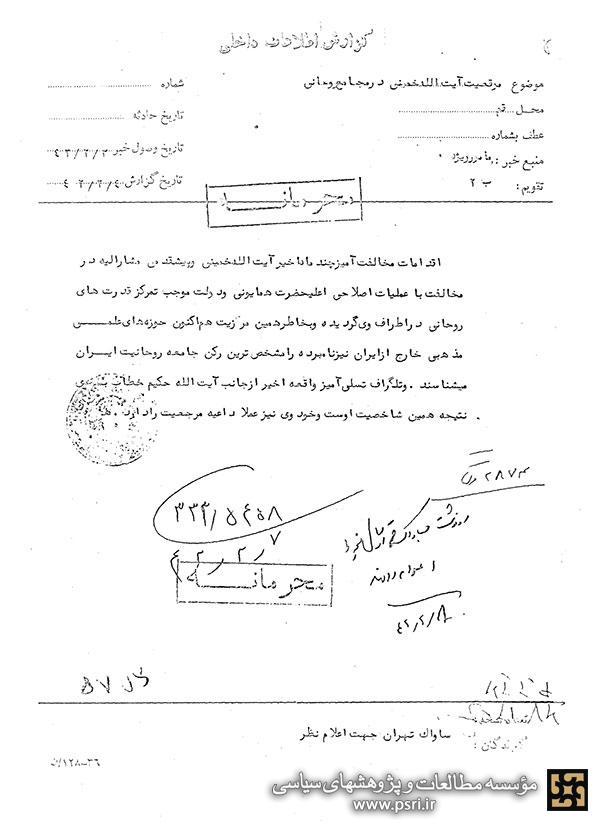 گزارش اطلاعات داخلی
موضوع موقعیت آیت الله خمینی در مجامع روحانی
شماره
محل قم
تاریخ حادثه
عطف بشماره
تاریخ وصول خبر ۴۲/۲/۲
منبع خبر: مأمور ویژه
تاریخ گزارش ۴۲/۲/۴
تقویم: ب ۲
محرمانه
اقدامات مخالفت آمیز چند ماه اخیر آیت الله خمینی و پیشقدمی مشارالیه در
مخالفت با عملیات اصلاحی اعلیحضرت همایونی و دولت موجب تمرکز قدرت های
روحانی در اطراف وی گردیده و بخاطر همین مزیت هم اکنون حوزه های علمی
مذهبی خارج از ایران نیز نامبرده را مشخص ترین رکن جامعه روحانیت ایران
میشناسند . و تلگراف تسلی آمیز واقعه اخیر از جانب آیت الله حکیم خطاب بوی
نتیجه همین شاخصیت اوست و خود وی نیز عملا داعیه مرجعیت را دارد .
۲۸۷۳
۳۳۳/۵۴۵۸
۴۲/۲/۷
محرمانه
۴۲/۲/۸
تعداد نسخه
گیرندگان : ساواک تهران جهت اعلام نظر
۱۲۸-۳۶/ن
مؤسسه مطالعات و پژوهشهای سیاسی
www.psri.ir